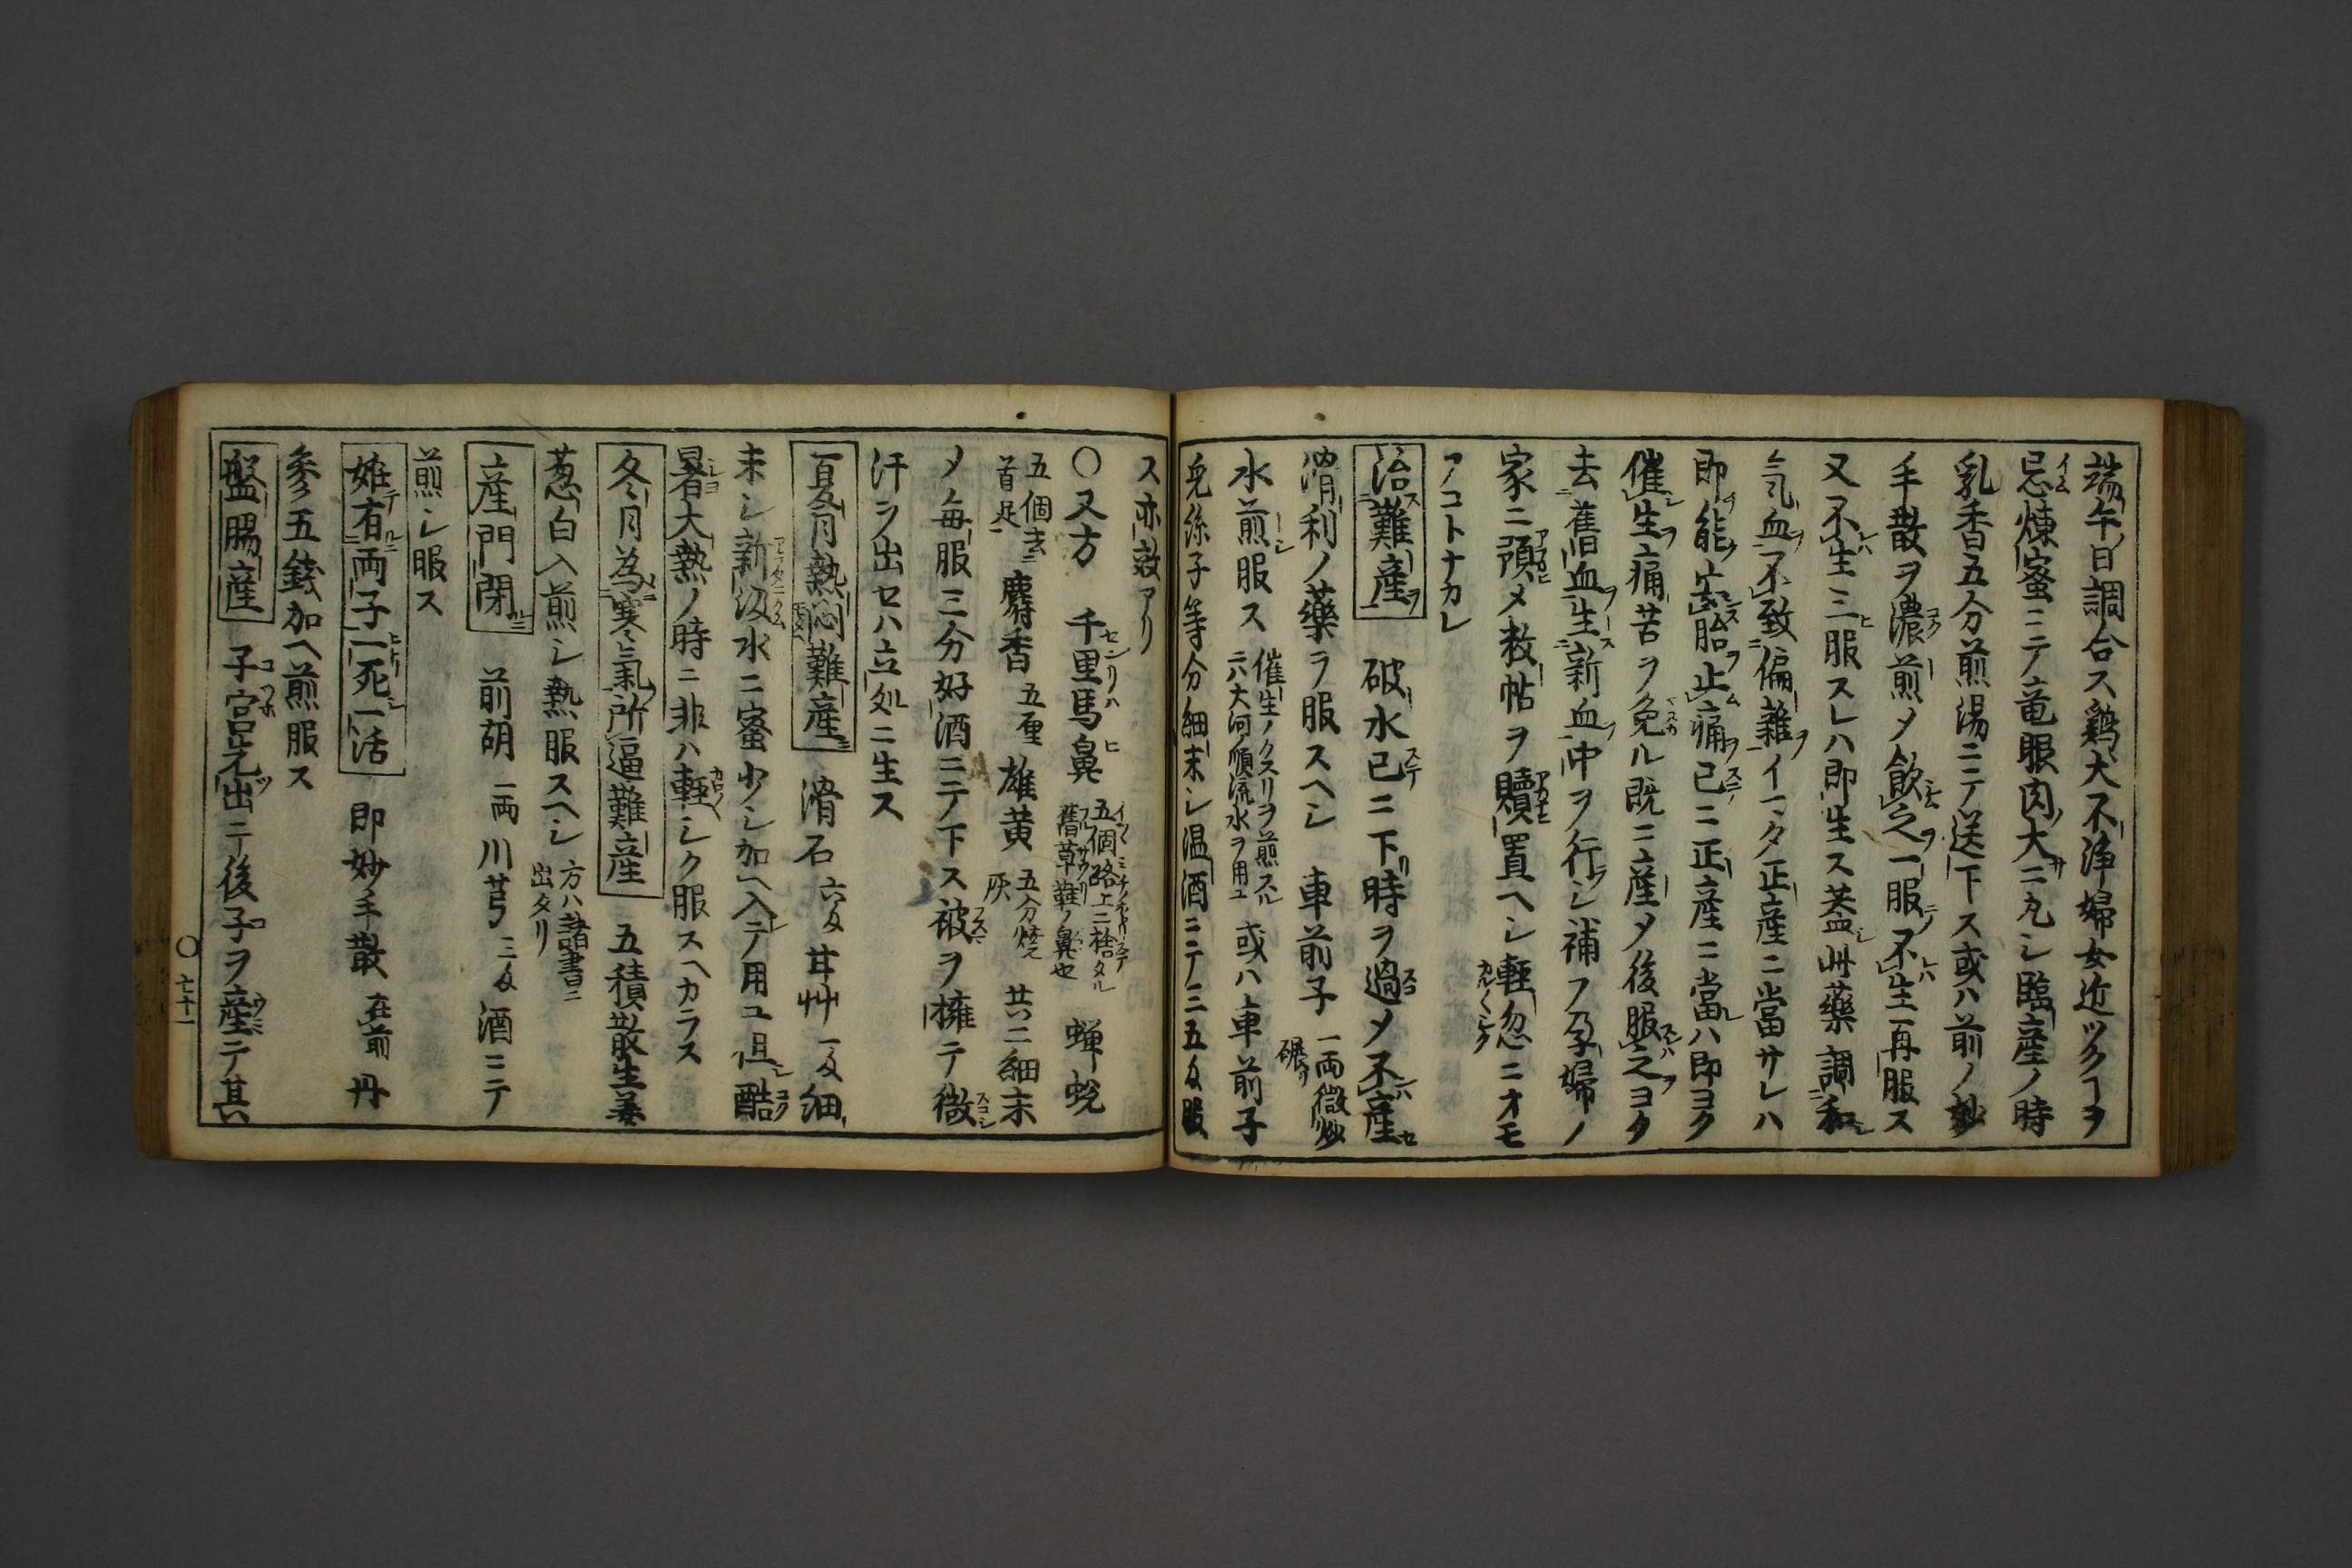 端午日調合ス鶏犬不浄婦女近ツクヿヲ
忌煉蜜ニテ竜眼肉大ニ丸シ臨産ノ時
乳香五分煎湯ニテ送下ス或ハ前ノ妙
手散ヲ濃煎メ飲之一服不生再服ス
又不生三服スレハ即生ス蓋此藥調和
気血不致偏難イマタ正産ニ當サレハ
即能安胎止痛已ニ正産ニ當ハ即ヨク
催生痛苦ヲ免ル既ニ産メ後服之ヨク
去舊血生新血中ヲ行シ補フ孕婦ノ
家ニ預メ数帖ヲ贖置ヘシ輕忽ニオモ
フコトナカレ
治難産 破水已ニ下時ヲ過メ不産
滑利ノ藥ヲ服スヘシ 車前子 一両微炒碾
水煎服ス 催生ノクスリヲ煎スルニハ大河ノ順流水ヲ用ユ 或ハ車前子
兎絲子等分細末シ温酒ニテ三五匁服
ス亦効アリ
〇又方 千里馬鼻 五個路上ニ捨タル舊草鞋ノ鼻也 蝉蛻
五個去首足 麝香 五厘 雄黄 五分焼灰 共ニ細末
メ毎服三分好酒ニテ下ス被ヲ擁テ微
汗ヲ出セハ立処ニ生ス
夏月熱悶難産 滑石 六匁 甘艸 一匁 細
末シ新汲水ニ蜜少シ加ヘ入テ用ユ且酷
暑大熱ノ時ニ非ハ輕シク服スヘカラス
冬月為寒氣所逼難産 五積散生姜
葱白入煎シ熱服スヘシ 方ハ諸書ニ出タリ
産門閉 前胡 一両 川芎 三匁 酒ニテ
煎シ服ス
姙有両子一死一活 即妙手散 在前 丹
參五錢加ヘ煎服ス
盤腸産 子宮先出テ後子ヲ産テ其
〇七十一